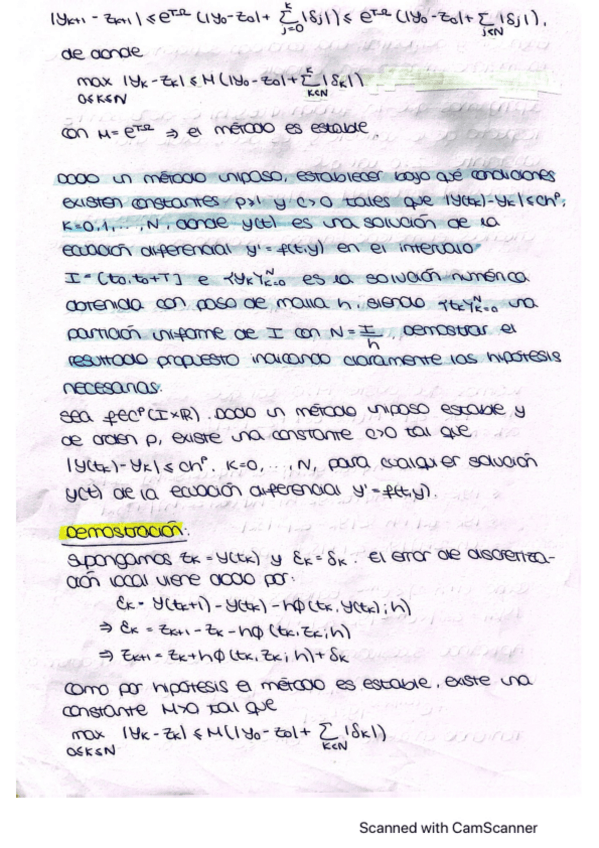 |yk+1 - zk+1| ≤ e^TΩ (|y0 - z0| + Σ_{j=0}^{k} |δj|) ≤ e^TΩ (|y0 - z0| + Σ_{j≤N} |δj|),
de donde
max |yk - zk| ≤ M (|y0 - z0| + Σ_{k≤N}^{k} |δk|)
0≤k≤N
con M = e^TΩ ⇒ el método es estable.
Dado un método unipaso, establecer bajo qué condiciones
existen constantes p≥1 y c>0 tales que |y(tk) - yk| ≤ ch^p,
k=0,1,..., N, donde y(t) es una solución de la
ecuación diferencial y' = f(t,y) en el intervalo
I = [t0, t0+T] e {yk}_{k=0}^{N} es la solución numérica
obtenida con paso de malla h, siendo {tk}_{k=0}^{N} una
partición uniforme de I con N = I/h. Demostrar el
resultado propuesto indicando claramente las hipótesis
necesarias.
sea f∈C^p(I×R). Dado un método unipaso estable y
de orden p, existe una constante c>0 tal que
|y(tk) - yk| ≤ ch^p, k=0, ..., N, para cualquier solución
y(t) de la ecuación diferencial y' = f(t,y).
Demostración:
Supongamos zk = y(tk) y Ɛk = δk. El error de discretiza-
ción local viene dado por:
Ɛk = y(tk+1) - y(tk) - hϕ(tk, y(tk); h)
⇒ Ɛk = zk+1 - zk - hϕ(tk, zk; h)
⇒ zk+1 = zk + hϕ(tk, zk; h) + δk
Como por hipótesis el método es estable, existe una
constante M>0 tal que
max |yk - zk| ≤ M (|y0 - z0| + Σ_{k≤N} |δk|)
0≤k≤N
Scanned with CamScanner